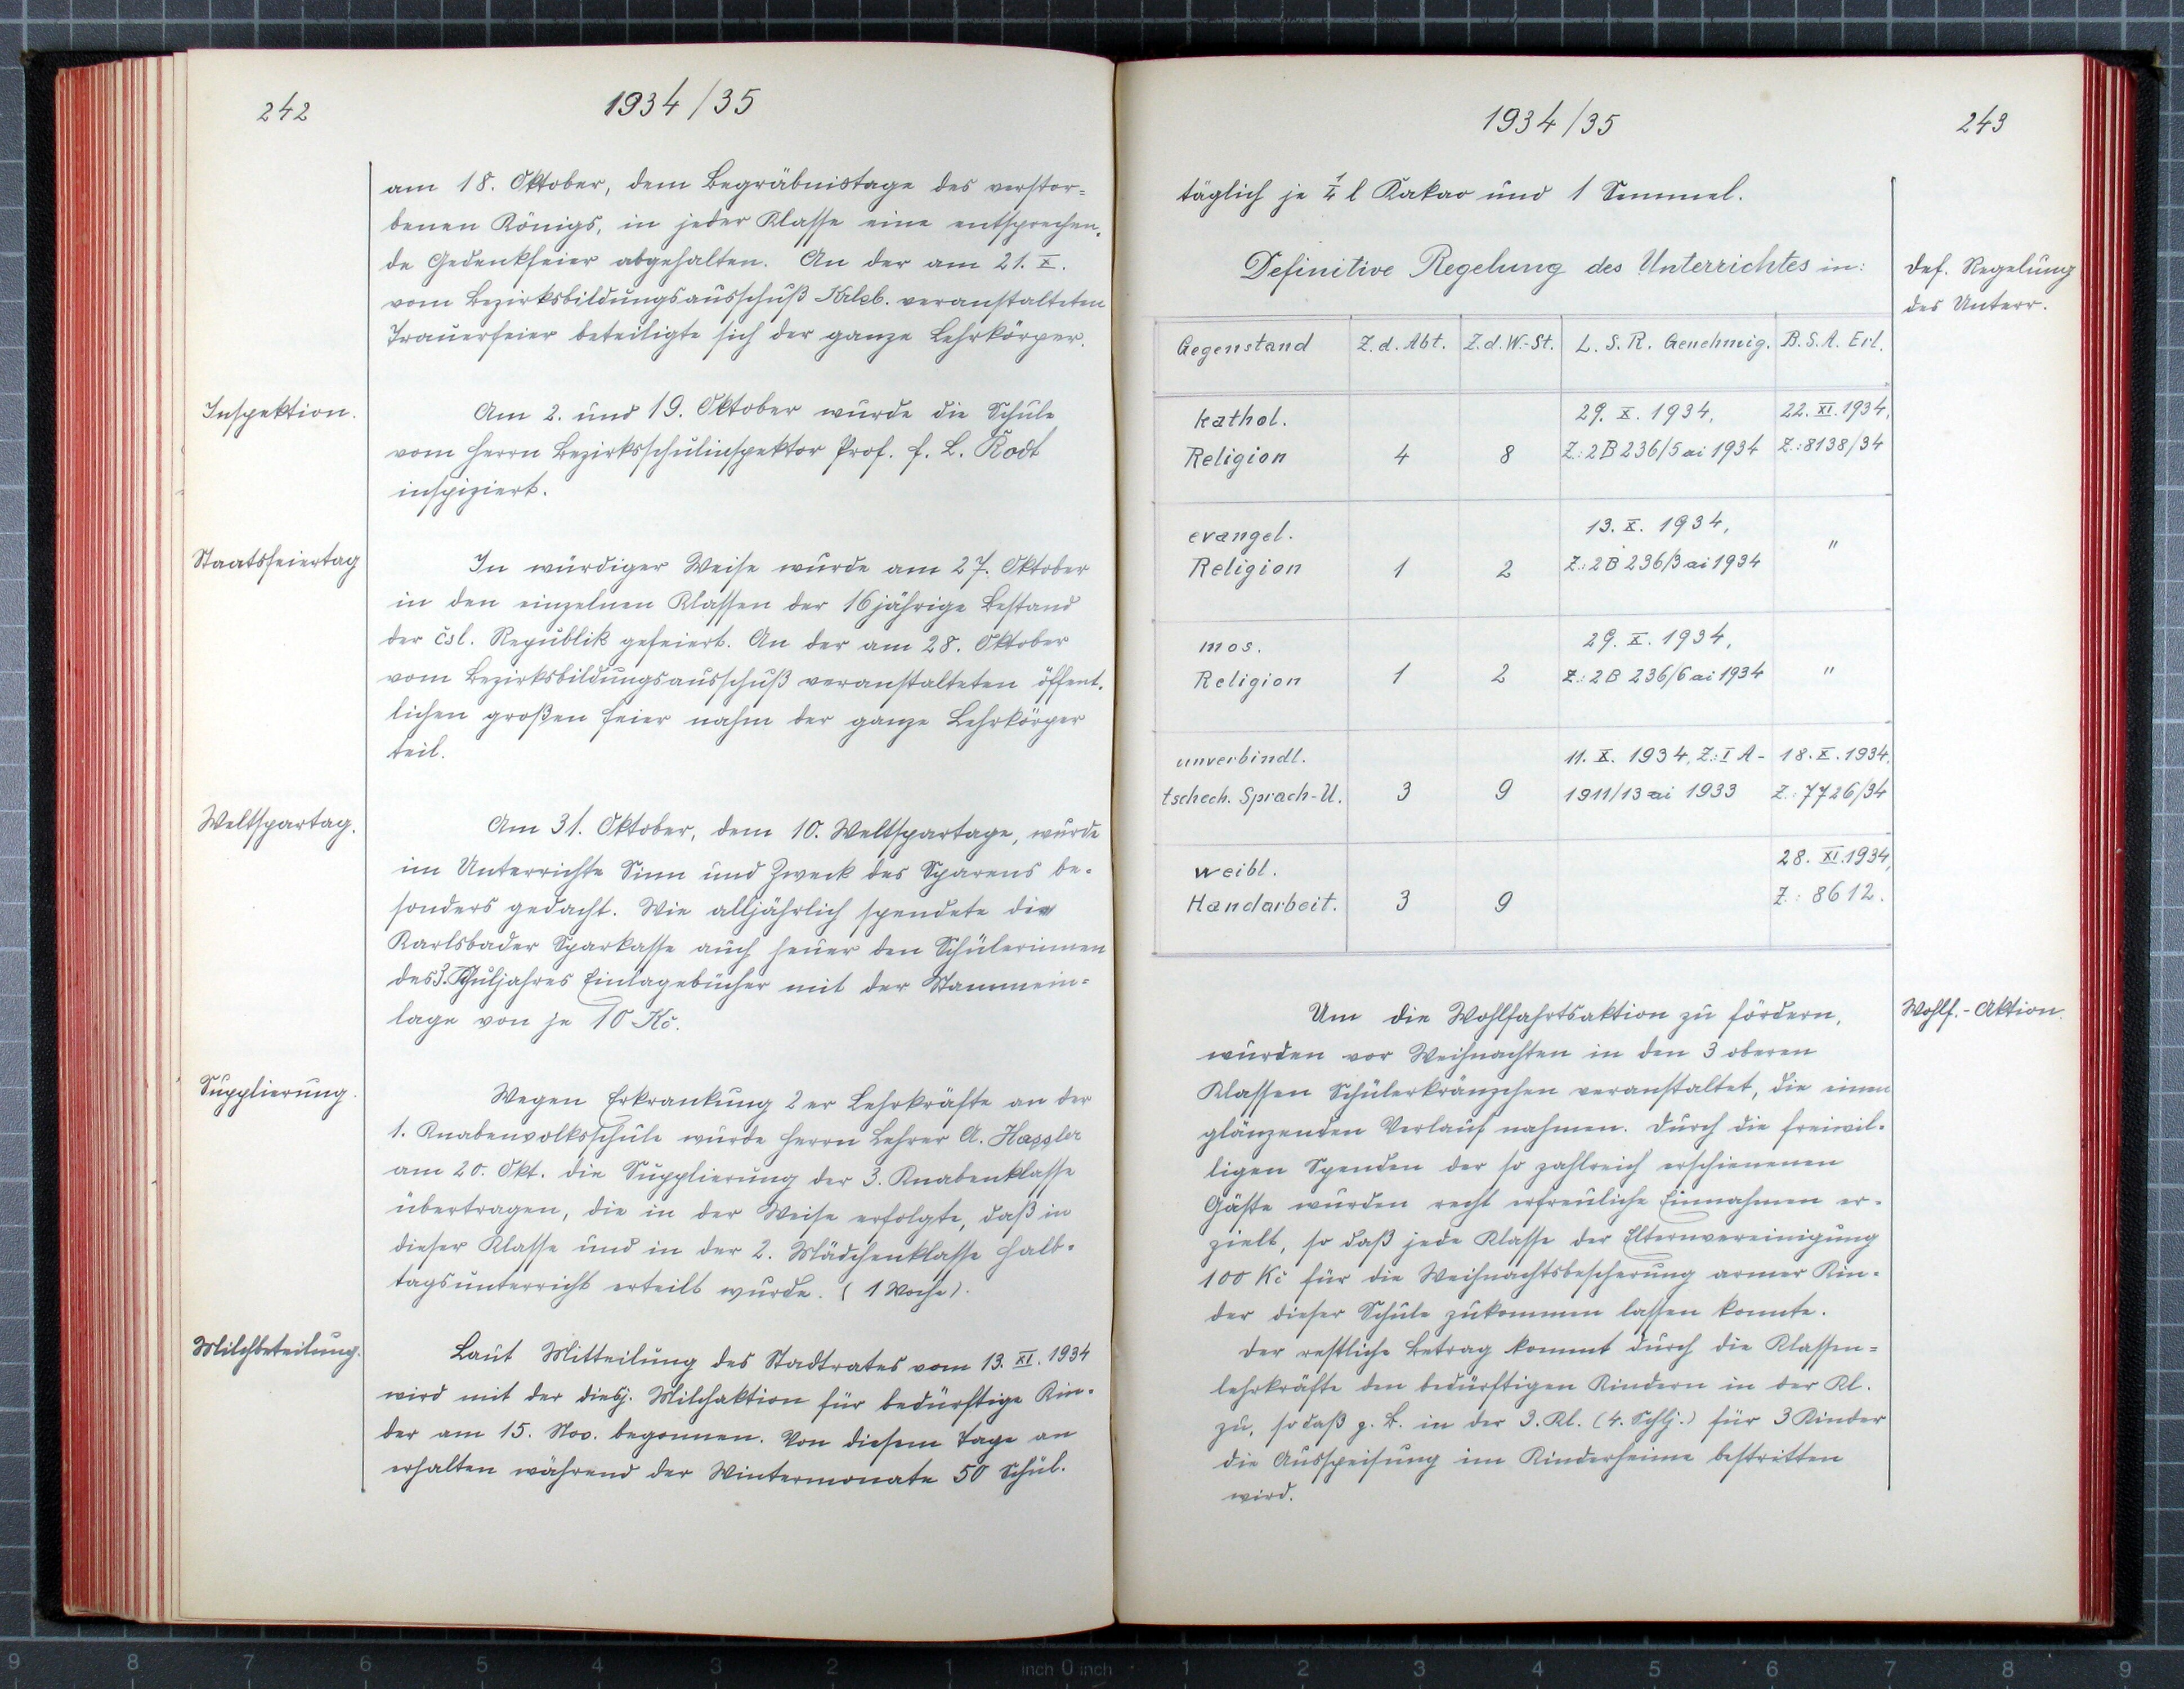 242
1934/35
am 18. Oktober, dem Begräbnistage des verstor=
benen Königs, in jeder Klasse eine entsprechen=
de Gedenkfeier abgehalten. An der am 21. X.
vom Bezirksbildungsausschuß Krlsb. veranstalteten
Trauerfeier beteiligte sich der ganze Lehrkörper.
Inspektion.
Am 2. und 19. Oktober wurde die Schule
vom Herrn Bezirksschulinspektor Prof. F. L. Rodt
inspiziert.
Staatsfeiertag
In würdiger Weise wurde am 27. Oktober
in den einzelnen Klassen der 16jährige Bestand
der čsl. Republik gefeiert. An der am 28. Oktober
vom Bezirksbildungsausschuß veranstalteten öffent=
lichen großen Feier nahm der ganze Lehrkörper
teil.
Weltspartag.
Am 31. Oktober, dem 10. Weltspartage, wurde
im Unterrichte Sinn und Zweck des Sparens be=
sonders gedacht. Wie alljährlich spendete die
Karlsbader Sparkasse auch heuer den Schülerinnen
des 3. Schuljahres Einlagebücher mit der Stammein=
lage von je 10 Kč.
Supplierung.
Wegen Erkrankung 2er Lehrkräfte an der
1. Knabenvolksschule wurde Herrn Lehrer A. Hassler
am 20. Okt. die Supplierung der 3. Knabenklasse
übertragen, die in der Weise erfolgte, daß in
dieser Klasse und in der 2. Mädchenklasse Halb=
tagsunterricht erteilt wurde. (1 Woche).
Milchbeteilung.
Laut Mitteilung des Stadtrates vom 13. XI. 1934
wird mit der diesj. Milchaktion für bedürftige Kin=
der am 15. Nov. begonnen. Von diesem Tage an
erhalten während der Wintermonate 50 Schül.
1934/35
243
täglich je 1/4 l Kakao und 1 Semmel.
Definitive Regelung des Unterrichtes in:
Def. Regelung
des Unterr.
Gegenstand Z.d.Abt. Z.d.W.-St. L.S.R. Genehmig. B.S.A. Erl.
kathol. 29. X. 1934, 22. XI. 1934,
Religion 4 8 Z.:2B 236/5 ai 1934 Z.:8138/34
evangel. 13. X. 1934,
Religion 1 2 Z.:2B 236/3 ai 1934 "
mos. 29. X. 1934,
Religion 1 2 Z.:2B 236/6 ai 1934 "
unverbindl. 11. X. 1934, Z.:I A- 18. X. 1934,
tschech. Sprach-U. 3 9 1911/13 ai 1933 Z.:7726/34
weibl. 28. XI. 1934,
Handarbeit. 3 9 Z.: 8612.
Wohlf.-Aktion.
Um die Wohlfahrtsaktion zu fördern,
wurden vor Weihnachten in den 3 oberen
Klassen Schülerkränzchen veranstaltet, die einen
glänzenden Verlauf nahmen. Durch die freiwil=
ligen Spenden der so zahlreich erschienenen
Gäste wurden recht erfreuliche Einnahmen er=
zielt, so daß jede Klasse der Elternvereinigung
100 Kč für die Weihnachtsbescherung armer Kin=
der dieser Schule zukommen lassen konnte.
Der restliche Betrag kommt durch die Klassen=
lehrkräfte den bedürftigen Kindern in der Kl.
zu, so daß z. B. in der 3. Kl. (4. Schlj.) für 3 Kinder
die Ausspeisung im Kinderheime bestritten
wird.
9 8 7 6 5 4 3 2 1 inch 0 inch 1 2 3 4 5 6 7 8 9